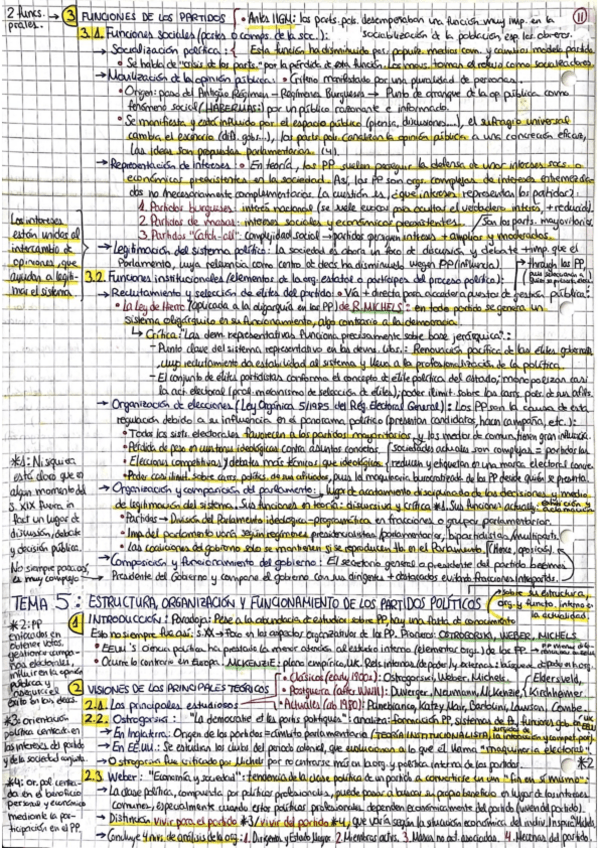 2 funcs. prales. → 3 FUNCIONES DE LOS PARTIDOS
• Antes IIGM: los parts. pols. desempeñaban una función muy imp. en la
socialización de la población esp. las obreras.
11
3.1. Funciones sociales (partes o comps. de la soc.):
→ Socialización política: Esta función ha disminuido por medios com. y cambios modelo partido
• Se habla de "crisis de los parts." por la pérdida de esta función. Los mass toman el relevo como socializadores.
→ Movilización de la opinión pública: • Criterio manifestado por una pluralidad de personas.
• Origen: paso del Antiguo Régimen - Regímenes Burgueses → Punto de arranque de la op. pública como
fenómeno social (HABERMAS:) por un público razonante e informado.
• Se manifiesta y está influido por el espacio público (prensa, discusiones...), el sufragio universal
cambia el escenario, los parts. pols. canalizan la opinión pública a una concreción eficaz,
las ideas son propuestas parlamentarias. (4)
→ Representación de intereses: • En teoría, los PP suelen perseguir la defensa de unos intereses socs. o
económicos preexistentes en la sociedad. Así, los PP son orgs. complejas de intereses entremezcla-
dos no necesariamente complementarios. La cuestión es, ¿qué intereses representan los partidos?
1. Partidos burgueses: interés nacional (se suele evocar para ocultar el verdadero interés, + reducido).
2. Partidos de masas: intereses sociales y económicos preexistentes.
3. Partidos "Catch-all": complejidad social → partidos persiguen intereses + amplios y moderados.
Son los parts. mayoritarios
Los intereses
están unidos al
intercambio de
opiniones, que
ayudan a legiti-
mar el sistema
→ Legitimación del sistema político: la sociedad es ahora un foco de discusión y debate + imp. que el
Parlamento, cuya relevancia como centro de decs ha disminuido
→ through los PP,
3.2. Funciones institucionales (elementos de la org. estatal o partícipes del proceso político):
→ Reclutamiento y selección de élites del partido: • Vía + directa para acceder a puestos de gestión pública:
• La Ley de Hierro (aplicada a la oligarquía en los PP) de R. MICHELS: en todo partido se genera un
sistema oligárquico en su funcionamiento, algo contrario a la democracia.
↳ Crítica: "Las dem. representativas funciona precisamente sobre base jerárquica".:
- Punto clave del sistema representativo en las dems. libs.: Renovación pacífica de las élites gobernan.
cuyo reclutamiento da estabilidad al sistema y lleva a la profesionalización de la política.
- El conjunto de élites partidistas conforma el concepto de élite política del estado; monopolizan casi
la act. electoral (pral. mecanismo de selección de élites); poder ilimit. sobre los cargos pols. de sus afils.
→ Organización de elecciones (Ley Orgánica 5/1985 del Rég. Electoral General): Los PP son la causa de esta
regulación debido a su influencia en el panorama político (presentan candidatos, hacen campaña, etc.):
• Todos los sists. electorales favorecen a los partidos mayoritarios y los medios de comun. tienen gran influencia.
• Pérdida de peso en cuestiones ideológicas contra asuntos concretos.
sociedades actuales son complejas =
• Elecciones competitivas y debates más técnicos que ideológicos
reducen y etiquetan en una marca electoral
• Poder casi ilimit. sobre cargs. políticos de sus afiliados, pues la maquinaria burocrática es de los PP desde quién se presenta.
*1: Ni siquiera
está claro que en
algún momento del
s. XIX fuera in
fact un lugar de
discusión, debate
y decisión pública.
No siempre pasa así,
es muy complejo
→ Organización y composición del parlamento: lugar de acatamiento disciplinado de las decisiones y medio
de legitimación del sistema. Sus funciones en teoría: discursiva y crítica *1. Sus funciones actuales:
• Partidos → División del Parlamento ideológico-programática en fracciones o grupos parlamentarios.
• Imp. del parlamento varía según regímenes presidencialistas/parlamentarios, bipartidistas/multiparts.
• Las coaliciones del gobierno solo se mantienen si se reproducen tb en el Parlamento.
→ Composición y funcionamiento del gobierno: El secretario general o presidente del partido
Presidente del Gobierno y compone el gobierno con sus dirigentes + destacados evitando fracciones intrapartids.
TEMA 5: ESTRUCTURA, ORGANIZACIÓN Y FUNCIONAMIENTO DE LOS PARTIDOS POLÍTICOS
→ sobre su estructura,
org. y functo. interno en
la actualidad.
1 INTRODUCCIÓN: Paradoja: Pese a la abundancia de estudios sobre PP, hay una falta de conocimiento
Esto no siempre fue así: S.XX → Foco en los aspectos organizativos de los PP. Pioneros: OSTROGORSKI, WEBER, MICHELS
• EEUU's ciencia política han prestado la menor atención al estudio interno (elementos orgs.) de los PP.
• Ocurre lo contrario en Europa. MCKENZIE: plano empírico, UK. Rels internas (de poder)
*2: PP
enfocados en
obtener votos,
gestionar campa-
ñas electorales,
influir en la opinión
pública y
asegurar el
éxito en los eleccs.
2 VISIONES DE LOS PRINCIPALES TEÓRICOS
• Clásicos (early 1900s): Ostrogorski, Weber, Michels.
• Postguerra (after WWII): Duverger, Neumann, McKenzie, Kirchheimer
Eldersveld,
• Actuales (ab 1980): Panebianco, Katz y Mair, Bartolini, Lawson, Combe.
2.1. Los principales estudiosos
2.2. Ostrogorski: "La democratie et les partis politiques": analiza: Formación PP, sistemas de PP, funciones gob. en UK EEUU
→ En Inglaterra: Origen de los partidos = ámbito parlamentario (TEORÍA INSTITUCIONALISTA)
→ En EEUU: Se estudian los clubs del periodo colonial, que evolucionan a lo que él llama "maquinaria electoral"
*2
→ Ostrogorski fue criticado por Michels por no centrarse más en la org. y política interna de los partidos.
*3: orientación
política centrada en
los intereses del partido
y de la sociedad conjunta.
2.3 Weber: "Economía y sociedad": tendencia de la clase política de un partido a convertirse en un "fin en sí mismo":
→ La clase política, compuesta por políticos profesionales, puede pasar a buscar su propio beneficio en lugar de los intereses
comunes, especialmente cuando estos políticos profesionales dependen económicamente del partido (viven del partido).
*4: or. pol. centra-
da en el beneficio
personal y económico
mediante la par-
ticipación en el PP.
→ Distinción vivir para el partido *3/vivir del partido *4, que varía según la situación económica del indiv.
→ Concluye 4 niv. de análisis de la org.: 1. Dirigente y Estado Mayor. 2. Miembros activs. 3. Masas no act. asociadas. 4. Mecenas del partido.